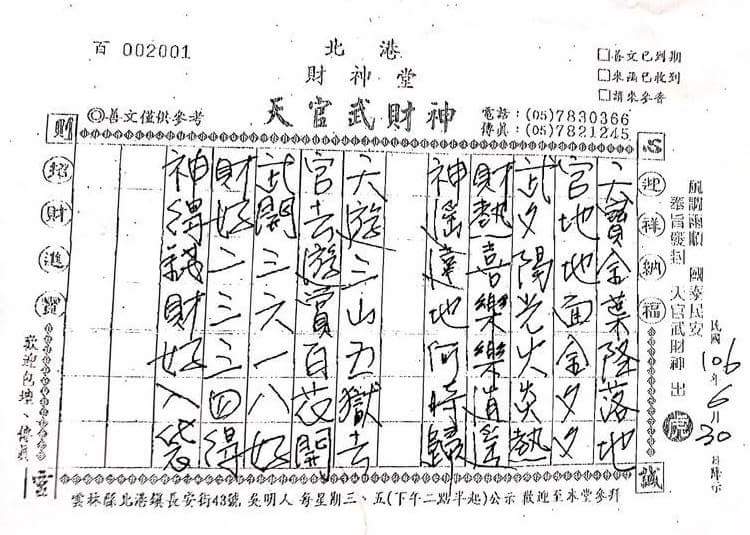 百 002001
北港
財神堂
天官武財神
◎善文僅供參考
□善文已到期
□來函已收到
□請來參香
電話：(05)7830366
傳真：(05)7821245
心
誠
財
迎祥納福
招財進寶
風調雨順 國泰民安
奉旨發封 天官武財神 出
民國106年6月30日
天寶金葉降落地
官地地面金夕夕
武夕陽光火炎熱
財熱喜樂樂逍遙
神遙達地何時歸
天遊三山五獄去
官去遊賞百花開
武開三六一八好
財好二三三四得
神得錢財好入袋
歡迎包壇、傳真
雲林縣北港鎮長安街43號 吳明人 每星期三、五(下午二點半起)公示 歡迎至本堂參拜